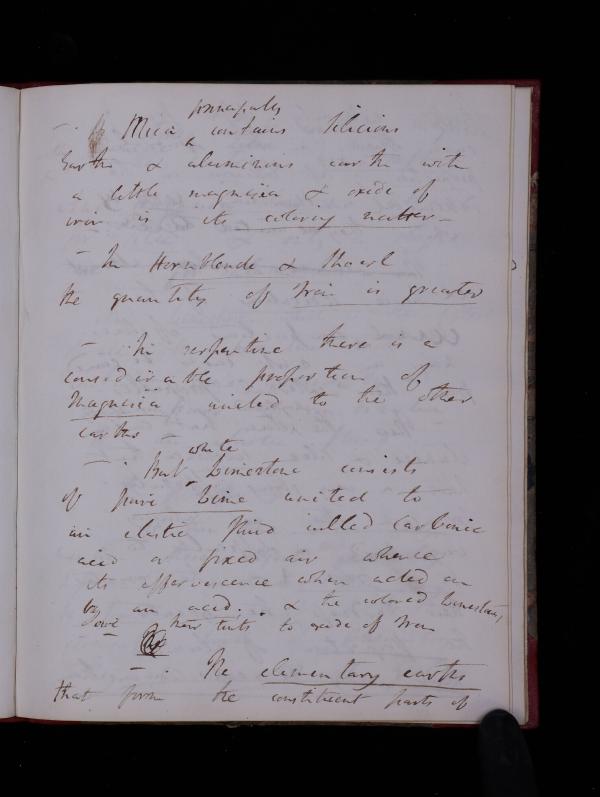 principally
— . Mica ^ contains Silicious
Earth & aluminous earth with
a little magnesia & oxide of
iron is its coloring matter —
— In Hornblende & Shoerl
the quantity of Iron is greater
— In serpentine there is a
considerable proportion of
Magnesia united to the other
earths —
white
— . But ^ Limestone consists
of pure Lime united to
an elastic fluid called Carbonic
acid or fixed air whence
its effervescence when acted on
by an acid; & the colored Limestones
owe their tints to oxide of Iron
— . The elementary earths
that form the constituent parts of